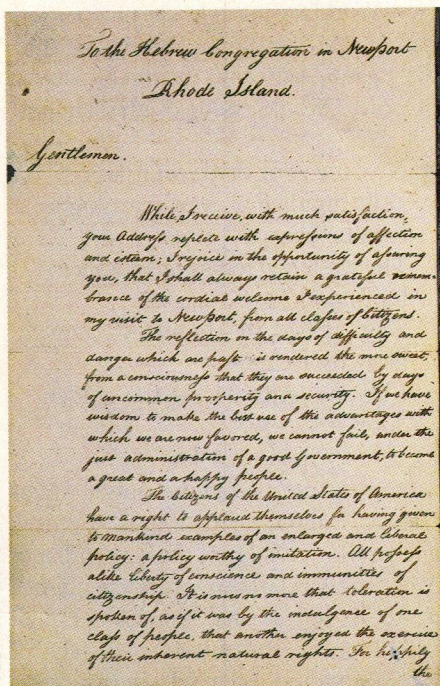 To the Hebrew Congregation in Newport
Rhode Island.
Gentlemen.
While, I receive, with much satisfaction,
your Address replete with expressions of affection
and esteem; I rejoice in the opportunity of assuring
you, that I shall always retain a grateful remem-
brance of the cordial welcome I experienced in
my visit to Newport, from all classes of Citizens.
The reflection on the days of difficulty and
danger which are past is rendered the more sweet,
from a consciousness that they are succeeded by days
of uncommon prosperity and security. If we have
wisdom to make the best use of the advantages with
which we are now favored, we cannot fail, under the
just administration of a good Government, to become
a great and a happy people.
The Citizens of the United States of America
have a right to applaud themselves for having given
to mankind examples of an enlarged and liberal
policy: a policy worthy of imitation. All possess
alike liberty of conscience and immunities of
citizenship. It is now no more that toleration is
spoken of, as if it was by the indulgence of one
class of people, that another enjoyed the exercise
of their inherent natural rights. For happily
the